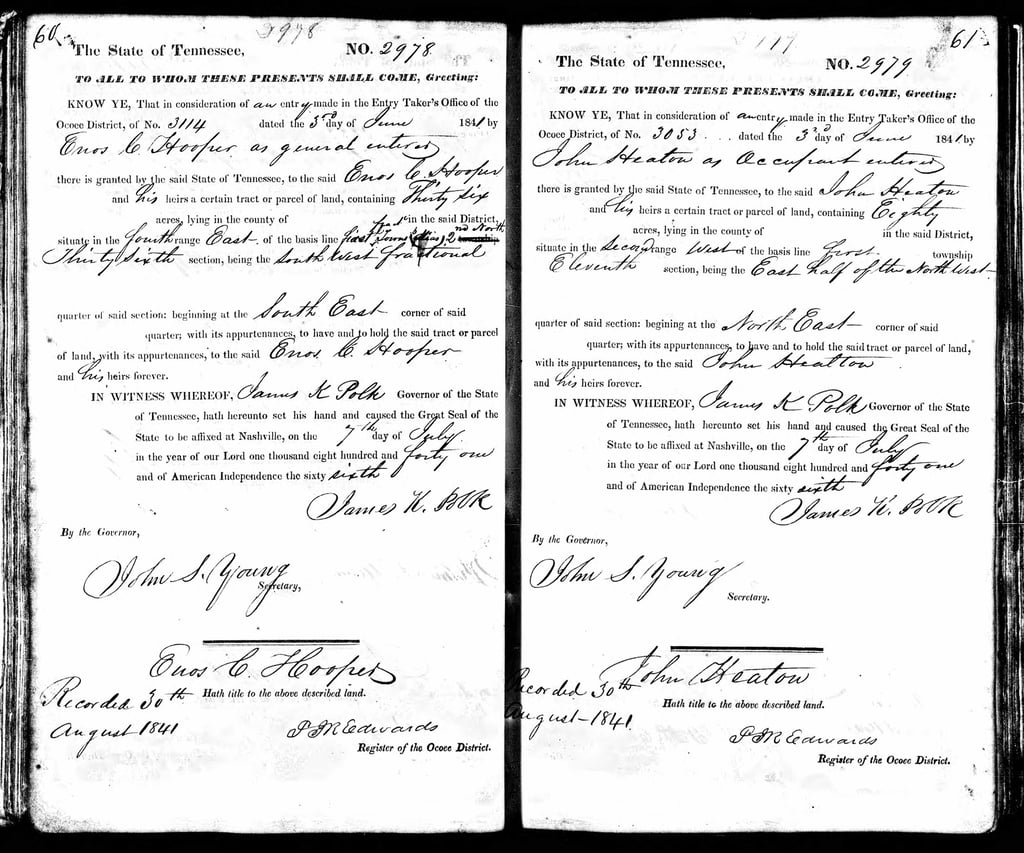 60
2978
The State of Tennessee, NO. 2978
TO ALL TO WHOM THESE PRESENTS SHALL COME, Greeting:
KNOW YE, That in consideration of an entry made in the Entry Taker's Office of the
Ococe District, of No. 3114 dated the 3rd day of June 1841 by
Enos C Hooper as general enterer
there is granted by the said State of Tennessee, to the said Enos C. Hooper
and his heirs a certain tract or parcel of land, containing Thirty six
acres, lying in the county of in the said District,
situate in the fourth range East of the basis line first 2nd North
Thirty Sixth section, being the South West fractional
quarter of said section: beginning at the South East corner of said
quarter; with its appurtenances, to have and to hold the said tract or parcel
of land, with its appurtenances, to the said Enos C. Hooper
and his heirs forever.
IN WITNESS WHEREOF, James K Polk Governor of the State
of Tennessee, hath hereunto set his hand and caused the Great Seal of the
State to be affixed at Nashville, on the 7th day of July
in the year of our Lord one thousand eight hundred and forty one
and of American Independence the sixty sixth
James K. Polk
By the Governor,
John S. Young
Secretary,
Enos C. Hooper
Hath title to the above described land.
Recorded 30th
August 1841
P M Edwards
Register of the Ococe District.
61
The State of Tennessee, NO. 2979
TO ALL TO WHOM THESE PRESENTS SHALL COME, Greeting:
KNOW YE, That in consideration of an entry made in the Entry Taker's Office of the
Ococe District, of No. 3053 dated the 3rd day of June 1841 by
John Heaton as Occupant enterer
there is granted by the said State of Tennessee, to the said John Heaton
and his heirs a certain tract or parcel of land, containing Eighty
acres, lying in the county of in the said District,
situate in the second range West of the basis line township
Eleventh section, being the East half of the North West
quarter of said section: begining at the North East corner of said
quarter; with its appurtenances, to have and to hold the said tract or parcel of land,
with its appurtenances, to the said John Heatton
and his heirs forever.
IN WITNESS WHEREOF, James K Polk Governor of the State
of Tennessee, hath hereunto set his hand and caused the Great Seal of the
State to be affixed at Nashville, on the 7th day of July
in the year of our Lord one thousand eight hundred and forty one
and of American Independence the sixty sixth
James K. Polk
By the Governor,
John S. Young
Secretary.
John Heaton
Hath title to the above described land.
Recorded 30th
August 1841
P M Edwards
Register of the Ococe District.